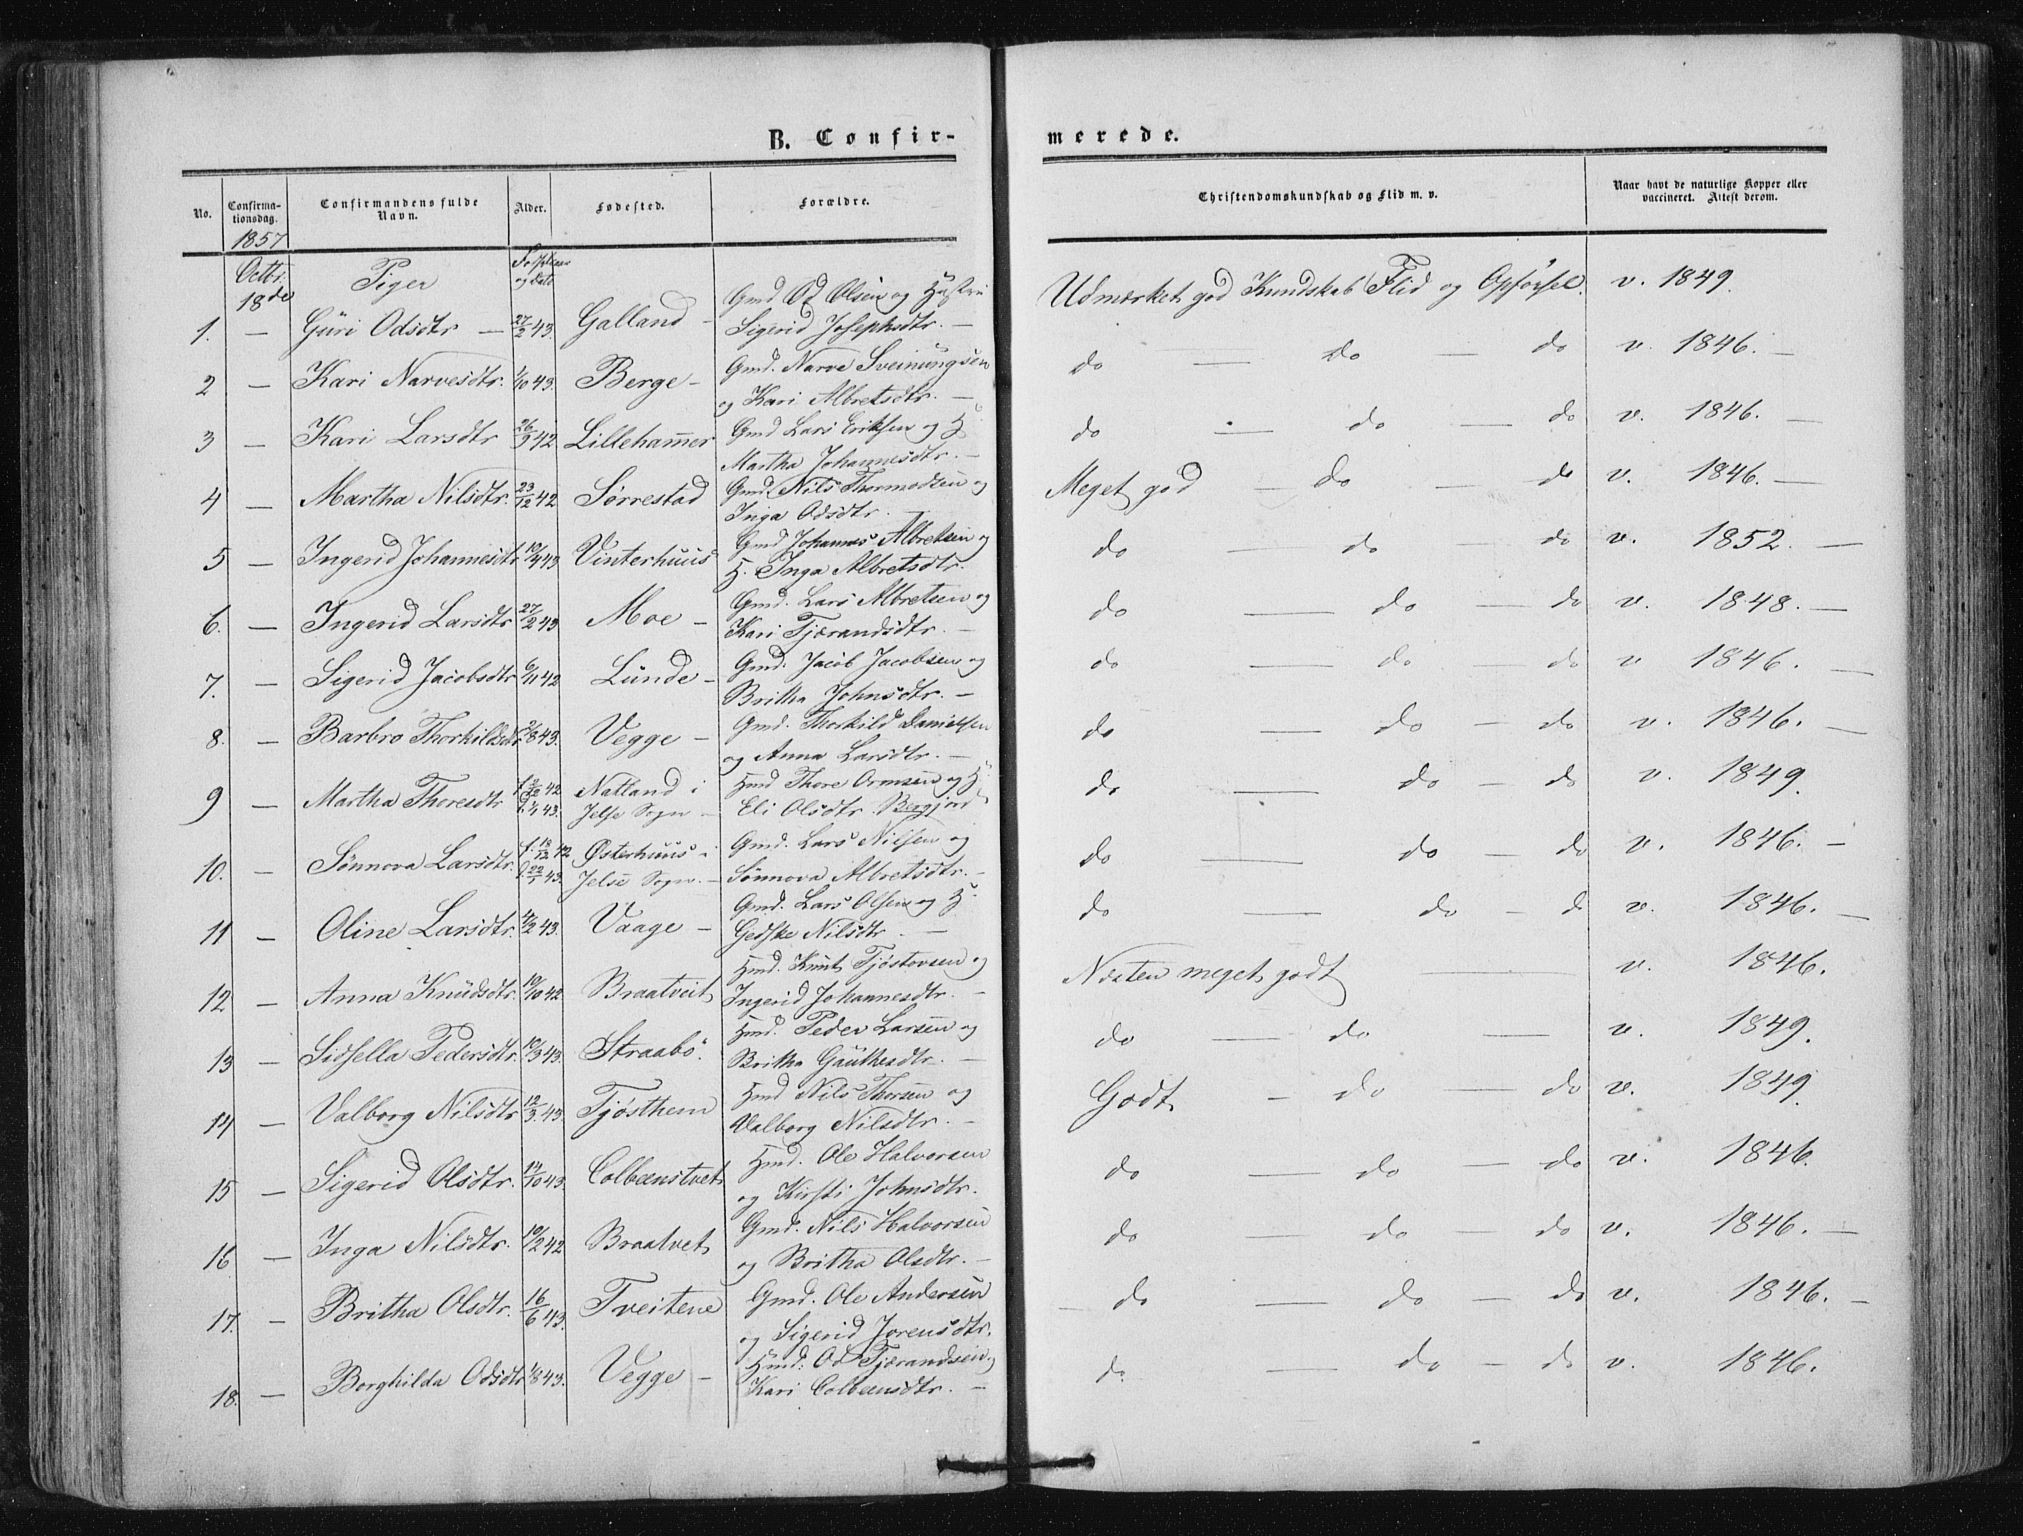 B. Confir-
merede.
No.
Confirma-
tionsdag.
Confirmandens fulde
Navn.
Alder.
Fødested.
Forældre.
Christendomskundskab og Flid m. v.
Naar havt de naturlige Kopper eller
vaccineret. Attest derom.
1857
Octbr.
18de
Piger
og Dato
1. — Guri Odsdtr — 27/2 43. Galland — Gmd Od Olsen og Hustru
Sigerid Josephsdtr. —
Udmærket god Kundskab Flid og Opførsel. v. 1849.
2 — Kari Narvesdtr. 1/10 43. Berge — Gmd. Narve Sveinungsen
og Kari Albretsdtr. —
do — do — do v. 1846. —
3 — Kari Larsdtr 26/9 42 Lillehammer Gmd Lars Eriksen og H.
Martha Johannesdtr. —
do — do — do v. 1846. —
4 — Martha Nilsdtr. 23/12 42 Sørrestad Gmd Nils Thormodsen og
Inga Odsdtr. —
Meget god — do — do v. 1846. —
5 — Ingerid Johannesdtr 10/4 43 Vinterhuus Gmd Johannes Albretsen og
H. Inga Albretsdtr.
do — do — do v. 1852. —
6. — Ingerid Larsdtr 27/2 43 Moe — Gmd. Lars Albretsen og
Kari Tjærandsdtr. —
do — do — do v. 1848. —
7. — Sigerid Jacobsdtr 6/11 42 Lunde — Gmd. Jacob Jacobsen og
Britha Johnsdtr. —
do — do — do v 1846. —
8. — Barbro Thorkildsdtr 2/8 43. Vegge — Gmd. Thorkild Danielsen
og Anna Larsdtr. —
do — do — do v. 1846. —
9 — Martha Thoresdtr Natland i Hmd Thore Ormsen og H.
Jelse Sogn — Eli Olsdtr. Bergjord
do — do — do v. 1849.
10. — Sønnova Larsdtr. f. 18/12 42 Østerhuus i Gmd. Lars Nilsen og
d. 22/1 43. Jelse Sogn. — Sønnova Albretsdtr. —
do — do — do v. 1846. —
11 — Oline Larsdtr. 4/2 43. Vaage — Gmd. Lars Olsen og H.
Gedske Nilsdtr. —
do — do — do v. 1846. —
12 — Anna Knudsdtr. 10/10 42 Braatveit Hmd. Knut Tjøstovsen og
Ingerid Johannesdtr. —
Næsten meget godt — v. 1846.
13 — Sidsella Pedersdtr. 10/3 43. Straabø. Hmd. Peder Larsen og
Britha Gauthesdtr. —
do — do — v. 1849.
14 — Valborg Nilsdtr 12/3. 43. Tjøsthem Hmd Nils Thorsen og
Valborg Nilsdtr. —
Godt — do — do v. 1849.
15 — Sigerid Olsdtr. 14/10 43. Colbeenstvet Hmd. Ole Halvorsen
og Kirsti Johnsdtr.
do — do — do v. 1846.
16 — Inga Nilsdtr. 10/2 42 Braatvet Gmd. Nils Halvorsen
og Britha Olsdtr. —
do — do — do v. 1846. —
17. — Britha Olsdtr. 16/6 43. Tveitene Gmd. Ole Andersen
og Sigerid Jorensdtr.
— do — do — do v. 1846. —
18. — Borghilda Odsdtr 1/8 43. Vegge — Hmd. Od Tjærandsen og
Kari Colbeensdtr. —
do — do — do v. 1846.